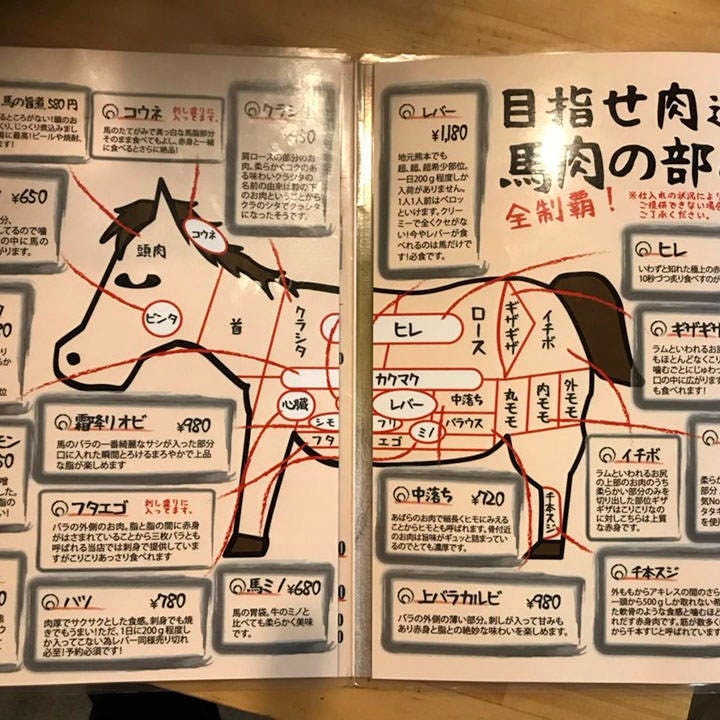 馬の旨煮 580円
コウネ
刺し盛りに
入ってます。
馬のたてがみで真っ白な馬脂部分
そのまま食べてもよし、赤身と一緒
に食べるとさらに絶品!
クラシタ
肩ロースの部分のお
肉。柔らかくコクのあ
る味わいクラシタの
名前の由来は鞍の下
のお肉ということから
クラのシタでクラシタ
になったそうです。
¥650
レバー
¥1,180
地元熊本でも
超、超、超希少部位。
一日200g程度しか
入荷がありません。
1人1人前はペロッ
といけます。クリー
ミーで全くクセがな
い!今やレバーが食
べれるのは馬だけで
す!必食です。
目指せ肉
馬肉の部
全制覇!
※仕入れの状況により
ご提供できない
ご了承ください。
ヒレ
いわずと知れた極上の赤
10秒づつ炙り食べすのが
頭肉
コウネ
ビンタ
首
クラシタ
ヒレ
ロース
ギザギザ
イチボ
カクマク
心臓
レバー
中落ち
丸モモ
内モモ
外モモ
シモ
フリ
バラウス
フタ
エゴ
ミノ
千本スジ
ギザギザ
ラムといわれるお尻
もほとんどなくこり
噛むごとにじゅわっ
口の中に広がります
も食べれます!
霜降りオビ
¥980
馬のバラの一番綺麗なサシが入った部分
口に入れた瞬間とろけるまろやかで上品
な脂が楽しめます
フタエゴ
刺し盛りに
入ってます。
バラの外側のお肉。脂と脂の間に赤身
がはさまされていることから三枚バラとも
呼ばれる当店では刺身で提供していま
すがこりこりあっさり食べれます
バツ
¥780
肉厚でサクサクとした食感。刺身でも焼
きでもうまい!ただ、1日に200g程度し
か入ってこない為レバー同様売り切れ
必至!予約必須です!
馬ミノ
¥680
馬の胃袋。牛のミノと
比べても柔らかく美味
です。
中落ち
¥720
あばらのお肉で細長くヒモにみえる
ことからヒモとも呼ばれます。骨付近
のお肉は旨味がギュッと詰まってい
るのでとても濃厚です。
上バラカルビ
¥980
バラの外側の薄い部分。刺しが入って甘みも
あり赤身と脂との絶妙な味わいを楽しめます。
イチボ
ラムといわれるお尻
の上部のお肉のうち
柔らかい部分のみを
切り出した部位ギザ
ギザはこりこりなの
に対しこちらは上質
な赤身です。
千本スジ
外ももからアキレスの間のさら
一頭から500gしか取れない希
た軟骨のような食感と噛むほど
れだす赤身肉です。筋が数多く
から千本すじと呼ばれています